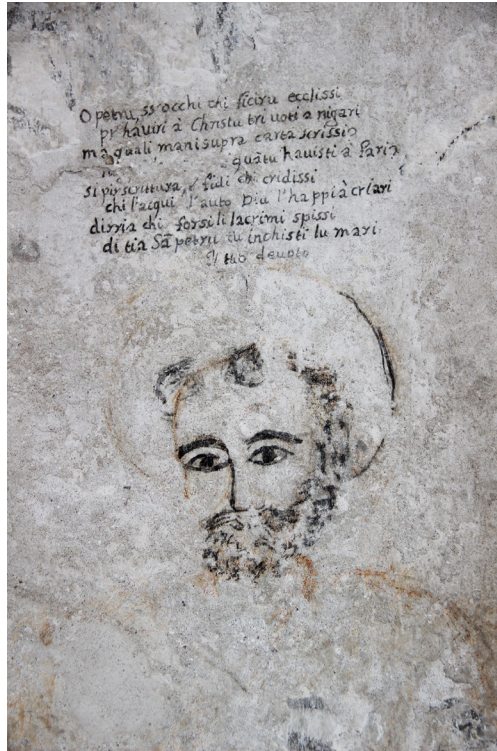 O petru, ss'occhi chi ficiru ecclissi
pr haviri à Christu tri voti a nigari
ma quali mani supra carta scrissi
quātu havisti a fari
si pir scrittura, e fidi chi cridissi
chi l'acqui l'auto Diu l'happi à criari
dirria chi forsi li lacrimi spissi
di tia Sā petru tu inchisti lu mari
Il tuo devoto